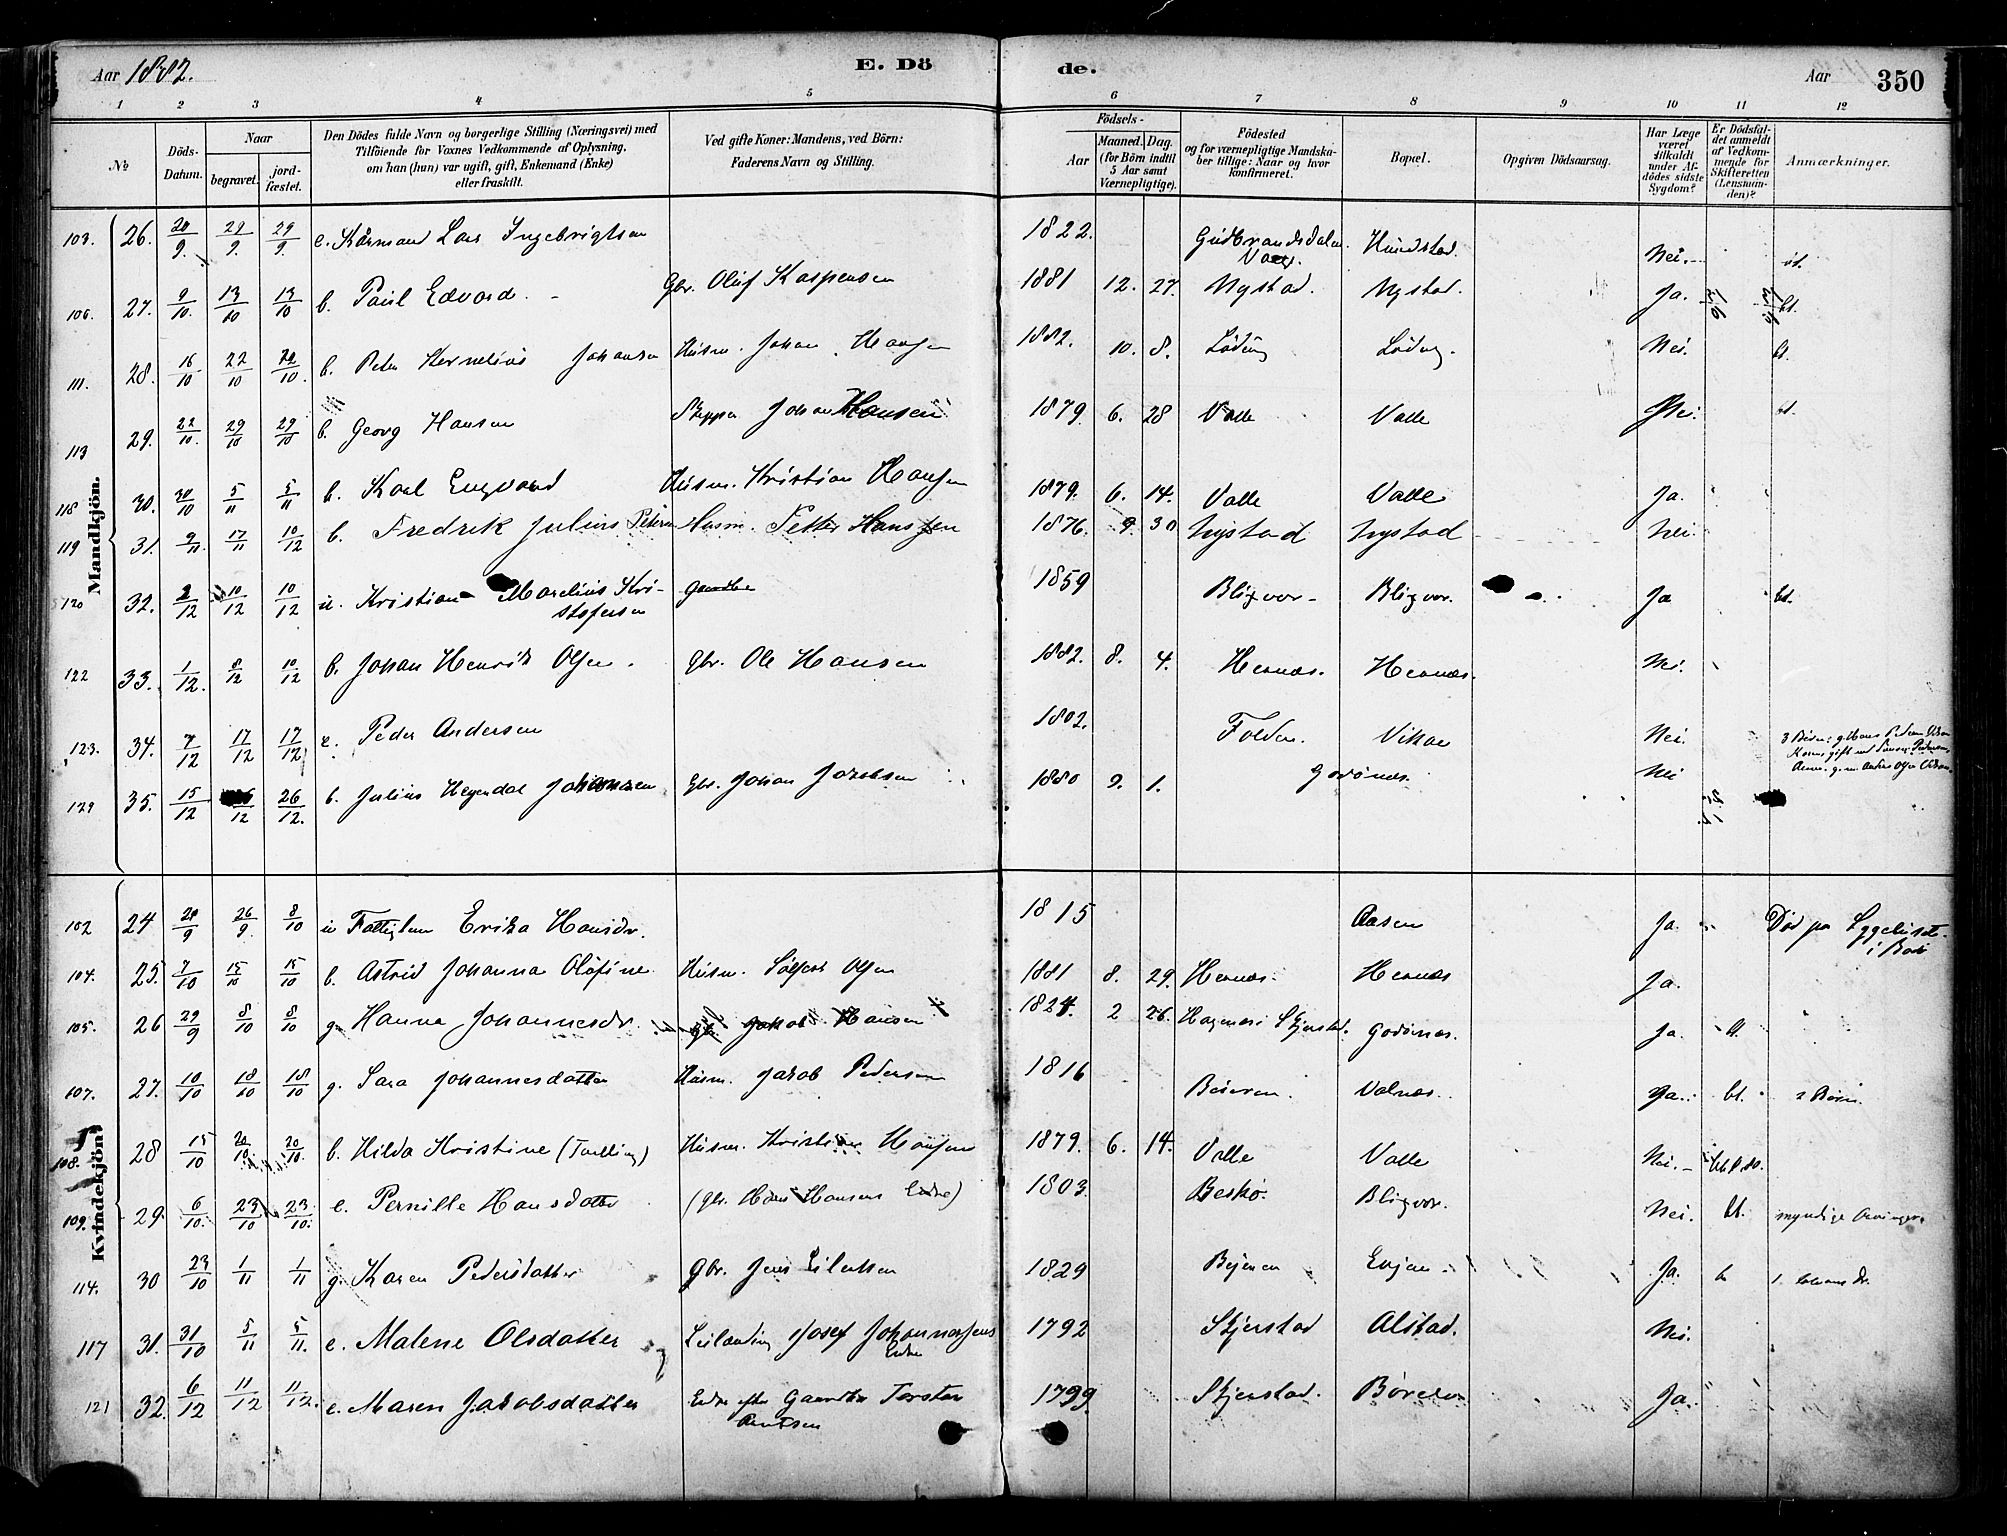 Aar 1882. E. Dö de. Aar 350
1 2 3 4 5 6 7 8 9 10 11 12
№ Döds-Datum. Naar begravet. jordfæstet. Den Dödes fulde Navn og borgerlige Stilling (Næringsvei) med Tilföiende for Voxnes Vedkommende af Oplysning, om han (hun) var ugift, gift, Enkemand (Enke) eller fraskilt. Ved gifte Koner: Mandens, ved Börn: Faderens Navn og Stilling. Födsels- Aar Maaned. Dag. (for Börn indtil 5 Aar samt Værnepligtige). Födested og for værnepligtige Mandskaber tillige: Naar og hvor konfirmeret. Bopæl. Opgiven Dödsaarsag. Har Læge været tilkaldt under Afdödes sidste Sygdom? Er Dödsfaldet anmeldt af Vedkommende for Skifteretten (Lensmanden)? Anmærkninger.
Mandkjön.
103. 26. 20/9 29/9 29/9 e. Kårmand Lars Ingebrigtsen 1822. Gudbrandsdalen Vaag. Hundstad. Nei.
106. 27. 9/10 13/10 13/10 b. Paul Edvard Gbr. Oluf Kaspersen 1881 12. 27. Nystad. Nystad. Ja. bt.
111. 28. 16/10 22/10 22/10 b. Peter Kornelius Johansen Husm. Johan Hansen 1882. 10. 8. Löding Löding. Nei. bt.
113 29. 22/10 29/10 29/10 b. Georg Hansen Skipper Johan Hansen 1879 6. 28 Valle Valle Nei. bt.
118 30. 30/10 5/11 5/11 b. Karl Engvard Husm. Kristian Hansen 1879. 6. 14. Valle Valle Ja.
119 31. 9/11 17/11 10/12 b. Fredrik Julius Petersen Husm. Petter Hanssen 1876. 9. 30 Nystad Nystad Nei.
120 32. 2/12 10/12 10/12 u. Kristian Marelius Kristofersen Gaardbr. 1859 Bligvær Bligvær. Ja bt.
122 33. 1/12. 8/12 10/12 b. Johan Henrik Olsen. Gbr. Ole Hansen 1882. 8. 4. Hernæs. Hernæs. Nei.
123. 34. 7/12 17/12 17/12 e. Peder Andersen 1802. Folden. Vikan Nei. 3 Börn:
129 35. 15/12 26/12. b. Julius Hegendal Johansen Gbr. Johan Jakobsen 1880 9. 1. Godönæs. Nei
Kvindekjön.
102 24 20/9 26/9 8/10 u Fattiglem Erika Hansdr. 1815 Aasen Ja. Död paa Sygehuset i Bodö
104. 25. 7/10 15/10 15/10 b. Astrid Johanna Olofine. Husm. Olsen 1881 8. 29. Hernæs. Hernæs Ja.
105. 26 29/9 8/10 8/10 g. Hanna Johannesdr. Gbr. Jakob Hansen 1824. 2 26. Skjerstad. Godönæs. Ja. bt.
107. 27. 10/10 18/10 18/10 g. Sara Johannesdatter Husm. Jakob Pedersen 1816 Beieren. Valnæs. Ja. bt. 2 Börn.
108. 28 15/10 20/10. 20/10. b. Hilda Kristine (Tvilling) Husm. Kristian Hansen 1879. 6. 14. Valle Valle Nei.
109. 29. 6/10. 23/10 23/10. e. Pernille Hansdatter (Gbr. Hans Hansens Enke) 1803. Beskö. Bligvær. Nei. bt. myndige Arvinger.
114. 30 23/10 1/11 1/11 g. Karen Pedersdatter Gbr. Jens Eilertsen 1829 Bejeren Evjen Ja. bt
117 31. 31/10 5/11 5/11. e. Malene Olsdatter Leilænding Josef Johannessens Enke 1792 Skjerstad Alstad. Nei.
121 32. 6/12 11/12 11/12. e. Maren Jakobsdatter Enke efter Gaardbr. Torstən Arntsen 1799. Skjerstad. Ja.